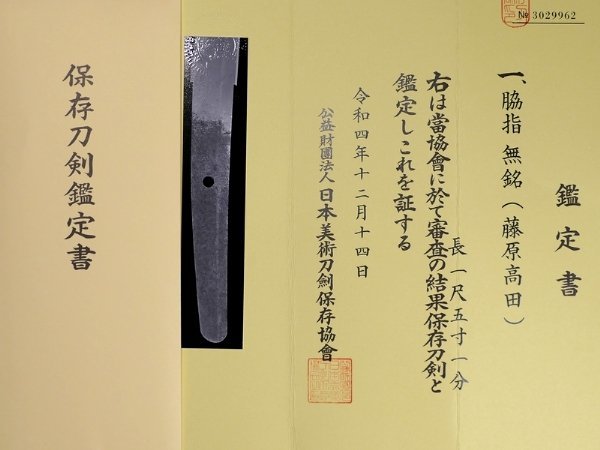 № 3029962
鑑定書
一、脇指 無銘(藤原高田)
長一尺五寸一分
右は當協會に於て審査の結果保存刀剣と
鑑定しこれを証する
令和四年十二月十四日
公益財團法人日本美術刀劍保存協會
保存刀剣鑑定書